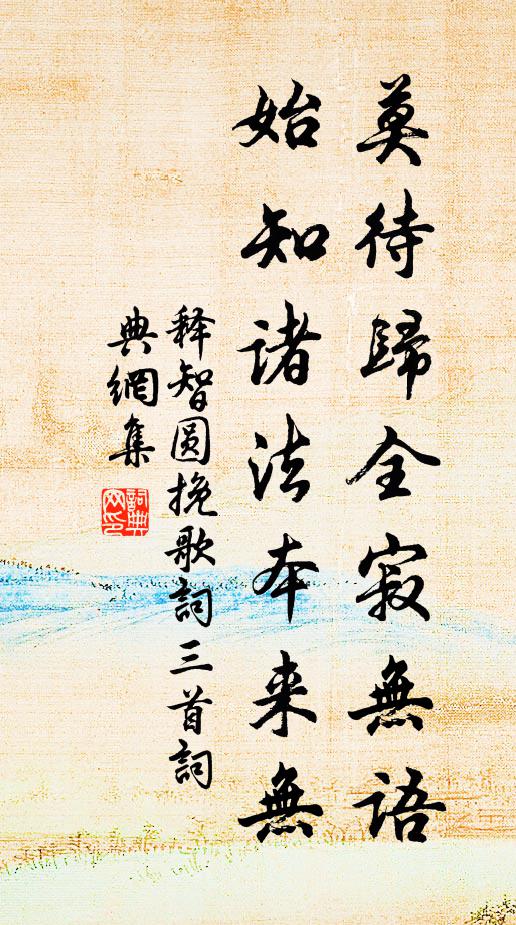 莫待歸全寂無語
始知诸法本来無
释智圆挽歌詞三首詞
典網集
詞典网印